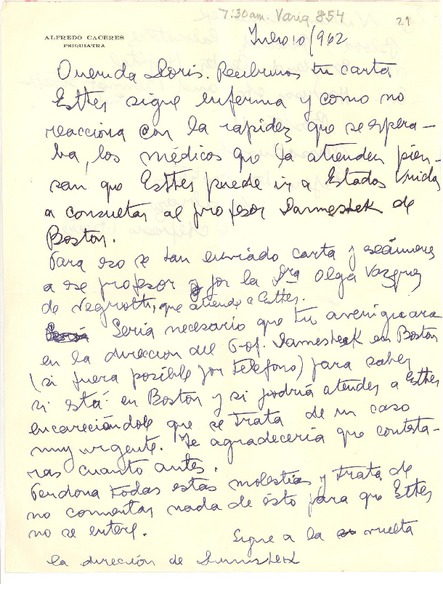 7:30am. Varig 854
21
ALFREDO CACERES
PSIQUIATRA
Enero 10/962
Querida Doris. Recibimos tu carta
Esther sigue enferma y como no
reacciona con la rapidez que se espera-
ba, los médicos que la atienden pien-
san que Esther puede ir a Estados Unidos
a consultar al profesor Dameshek de
Boston.
Para eso se han enviado carta y exámenes
a ese profesor por la Dra Olga Vazquez
de Negrotti, que atiende a Esther.
Sería necesario que tu averiguaras
en la dirección del Prof. Dameshek en Boston
(si fuera posible por teléfono) para saber
si está en Boston y si podría atender a Esther
encareciéndole que se trata de un caso
muy urgente. Te agradecería que contesta-
ras cuanto antes.
Perdona todas estas molestias y trata de
no comentar nada de ésto para que Esther
no se entere.
Sigue a la vuelta
la dirección de Dameshek